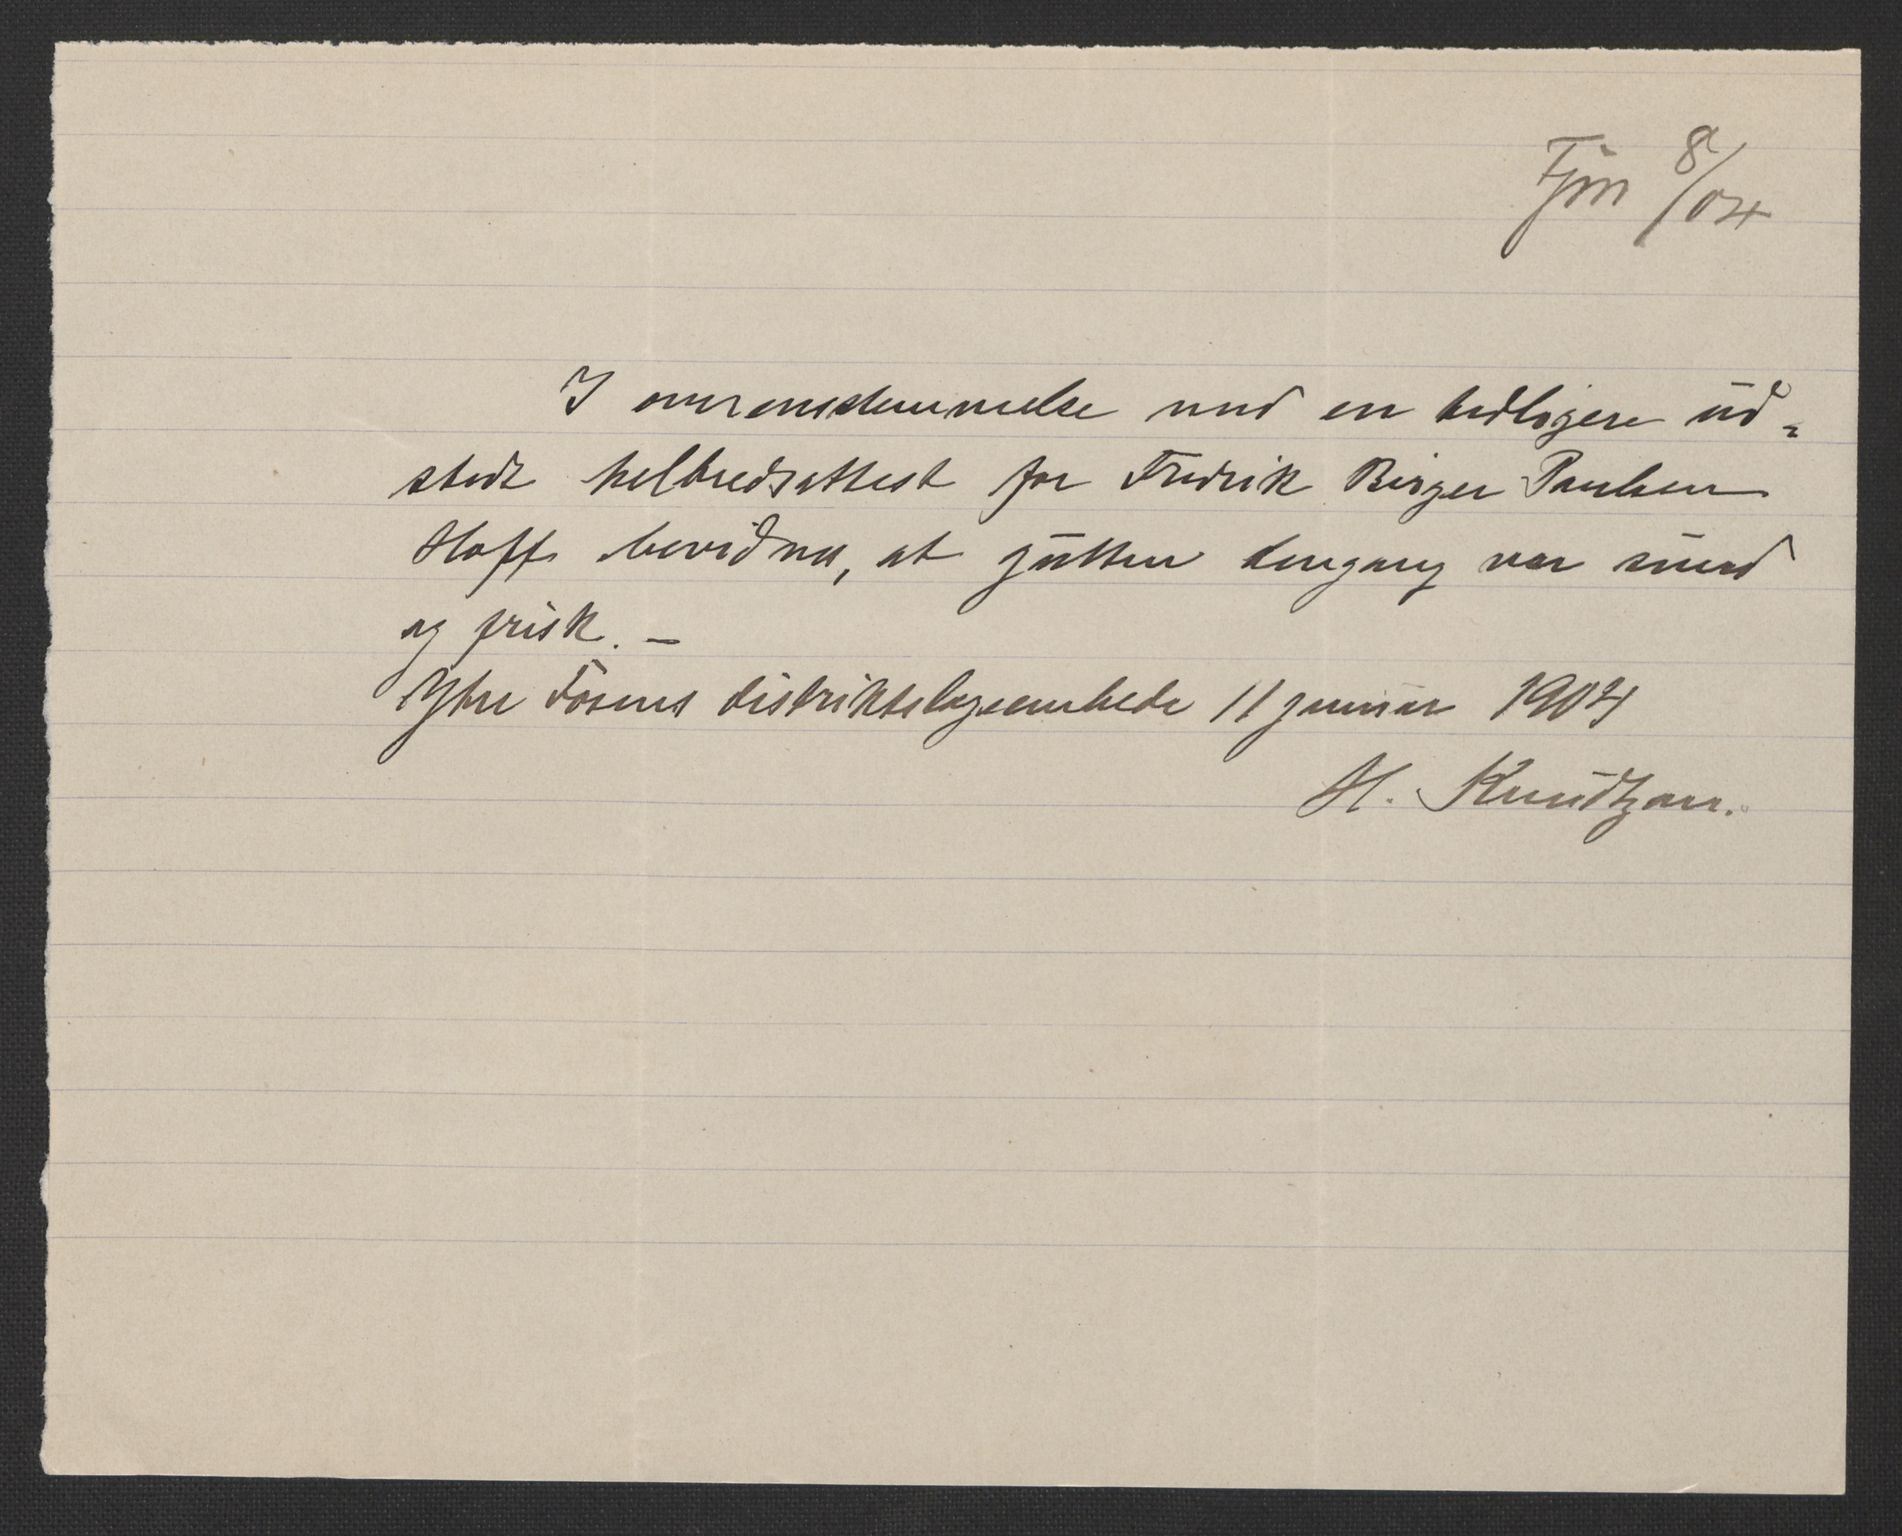 Fjm 8/04
I overensstemmelse med en tidligere ud-
stedt helbredsattest for Fredrik Birger Paulsen
Hoff bevidnes, at gutten dengang var sund
og frisk. —
Ytre Fosens distriktslægeembede 11 januar 1904
H. Knudtzon.